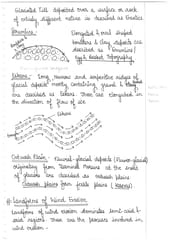 Glacial till deposited over a surface or rock
of entirely different nature is described as Erratics
Drumlins:
Elongated & oval shaped
boulders & clay deposits are
described as Drumlins/
egg & basket topography
Eskers: Long, narrow and serpentine ridges of
glacial deposits mostly containing gravel &
are described as eskers. These are elongated in
the direction of flow of ice.
Eskers
Outwash Plain: Fluvial-glacial deposits (Fluvio-glacial)
originating from Terminal Moraine at the snout
of glaciers are described as outwash
Outwash plains form fertile plains (Karewa)
# Landforms of Wind Erosion
Landforms of wind erosion dominates semi-arid & arid
regions. There are the processes involved in
wind erosion.